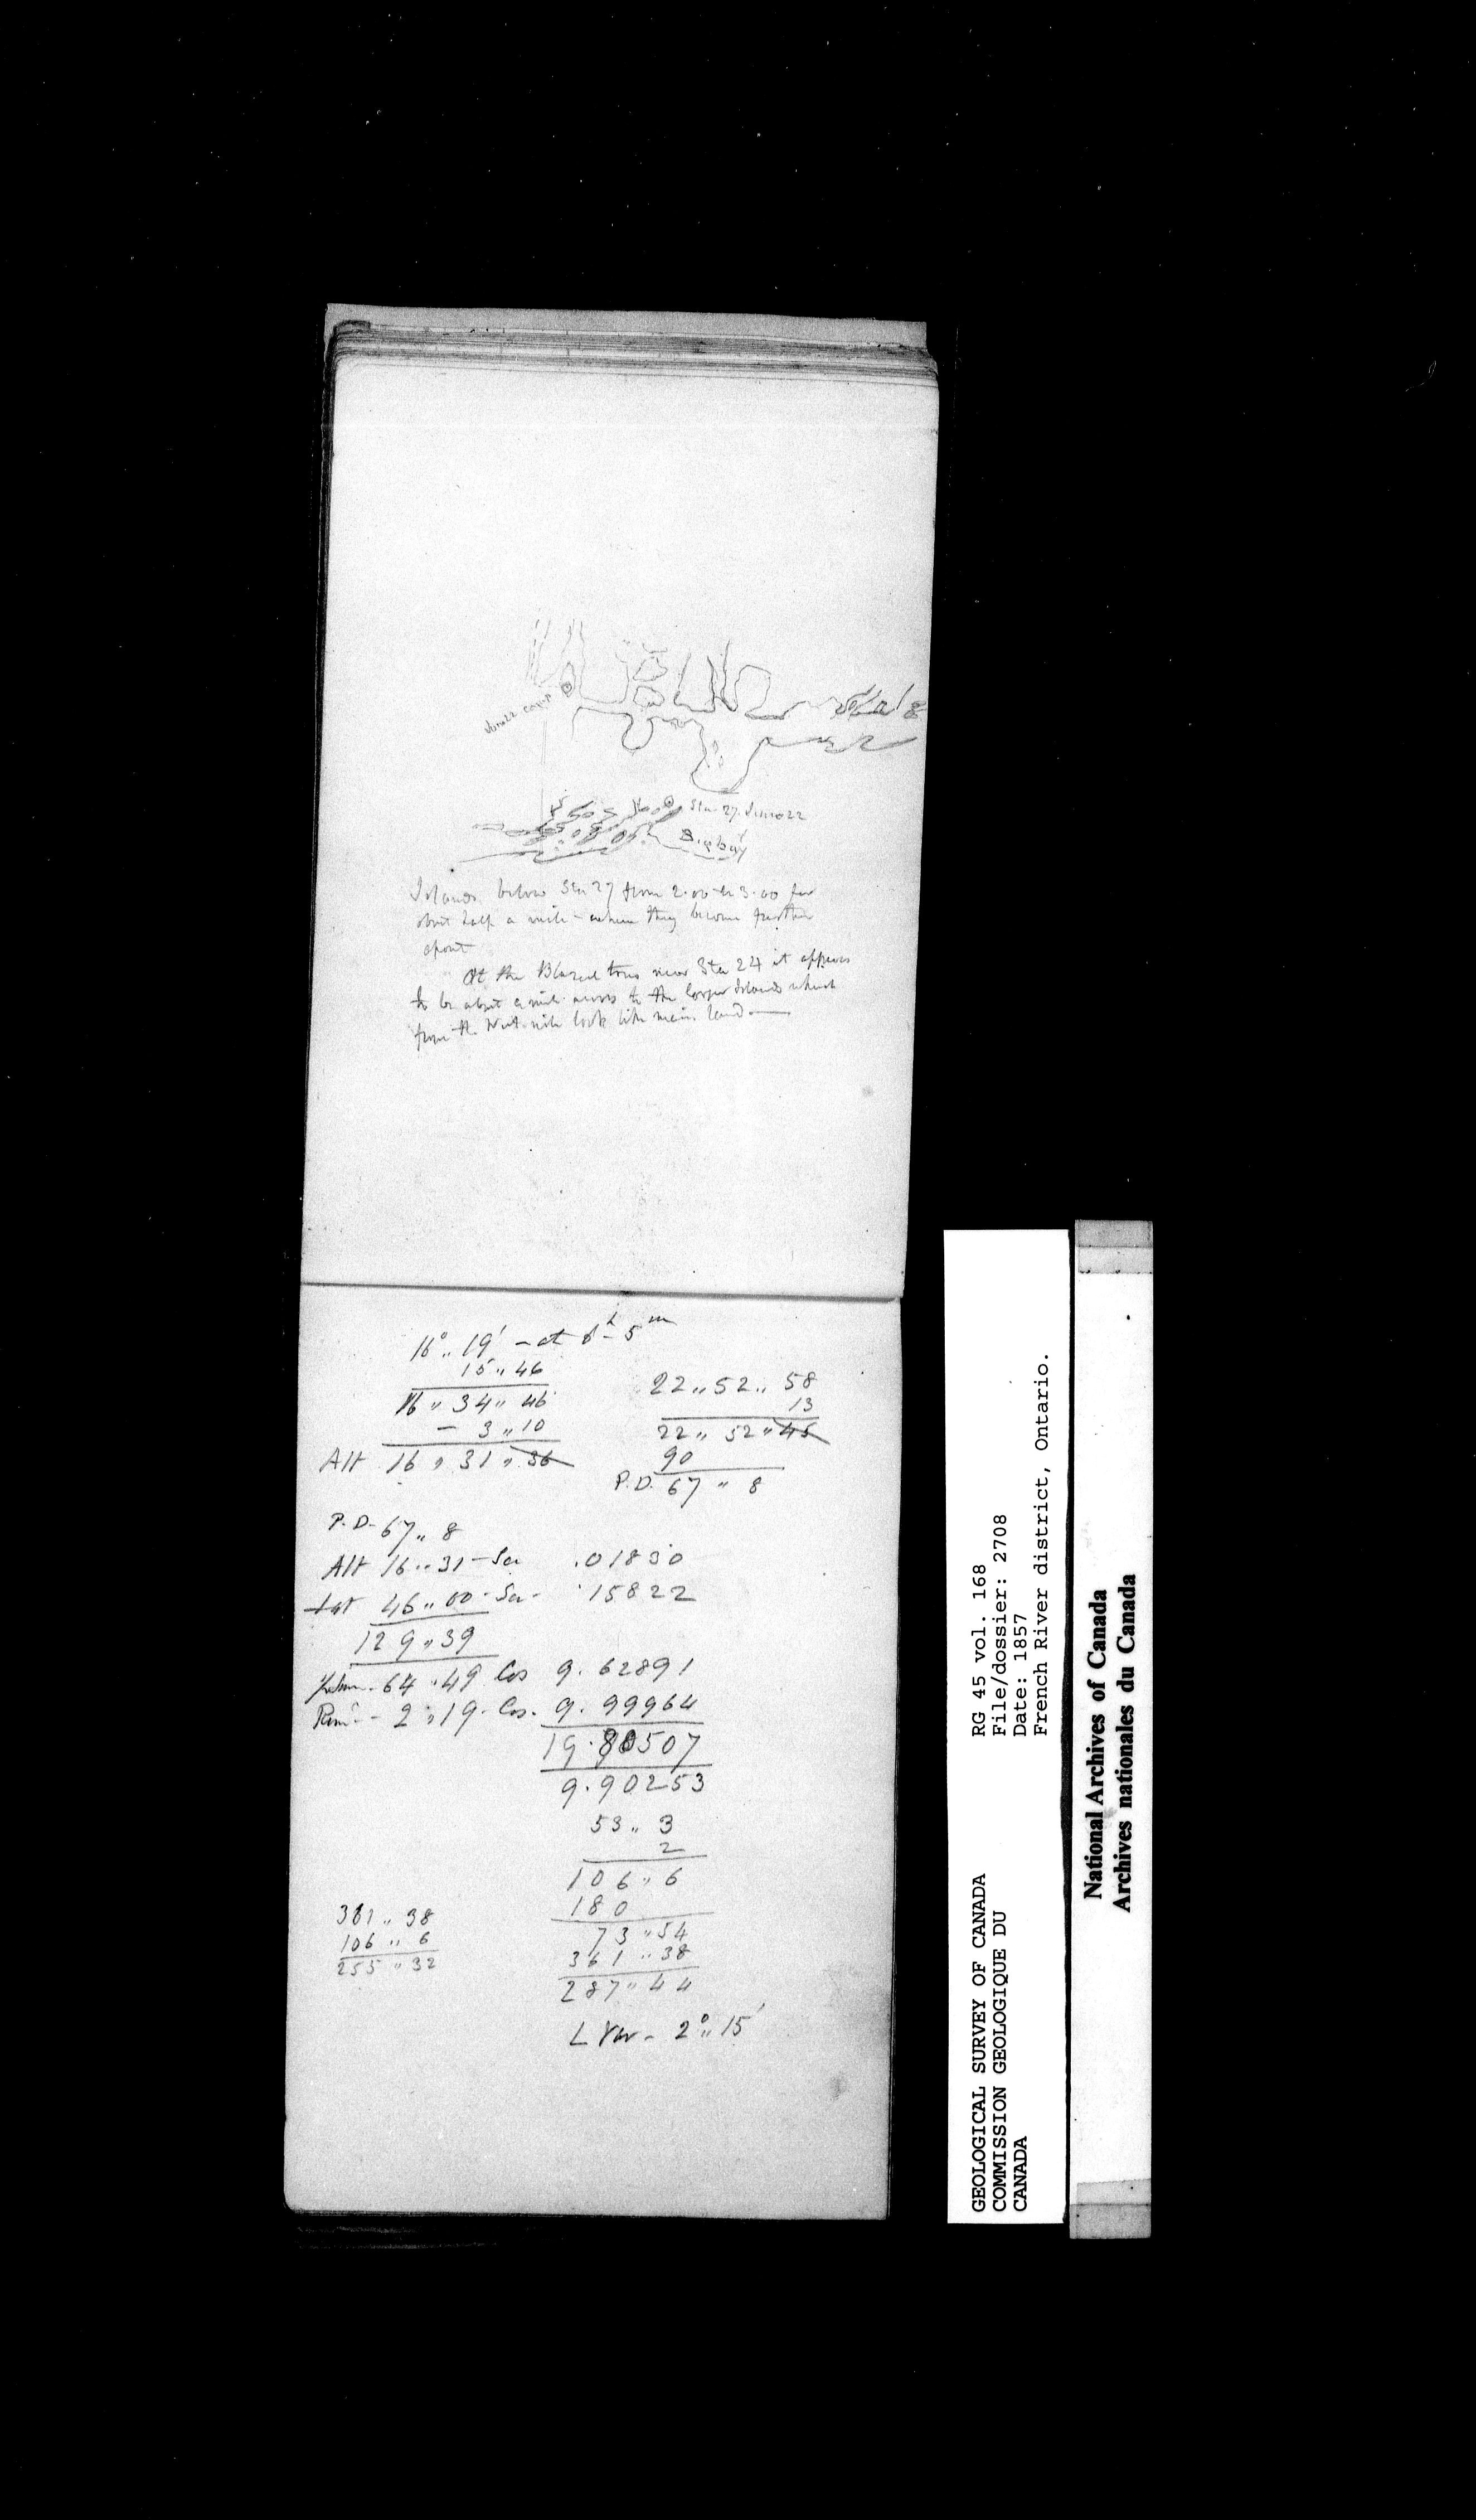 Sta 27. June 22
Big bay
Islands below Sta 27 from 2.00 to 3.00 for
about half a mile - when they become further
apart
At the Blazed trees near Sta 24 it appears
to be about a mile across to the larger Islands which
from the look like main land —
16° „ 19' - at 6h - 5m
15 „ 46
16 „ 34 „ 46
- 3 „ 10
Alt 16 „ 31 „ 36
22 „ 52 „ 58
13
22 „ 52 „ 45
90
P.D. 67 „ 8
P.D. 67 „ 8
Alt 16 „ 31 - Sec .01830
Lat 46 „ 00 - Sec - .15822
129 „ 39
64 „ 49 Cos 9.62891
Rem - 2 „ 19 - Cos. 9.99964
19.80507
9.90253
53 „ 3
2
106 „ 6
180
73 „ 54
361 „ 38
287 „ 44
361 „ 38
106 „ 6
255 „ 32
L Var - 2° „ 15'
GEOLOGICAL SURVEY OF CANADA
COMMISSION GEOLOGIQUE DU
CANADA
RG 45 vol. 168
File/dossier: 2708
Date: 1857
French River district, Ontario.
National Archives of Canada
Archives nationales du Canada